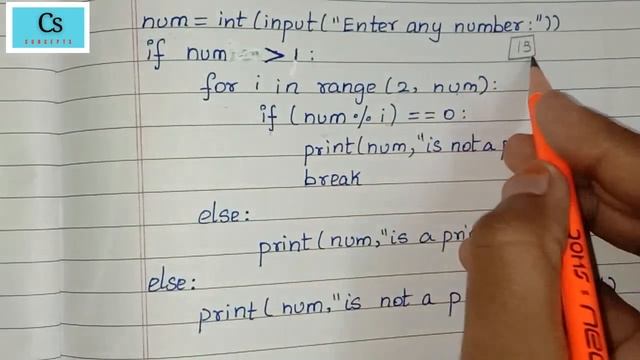 Cs
CONCEPTS
num = int(input("Enter any number:"))
if num > 1:
13
for i in range (2, num):
if (num % i) == 0:
print(num,"is not a p
break
else:
print(num,"is a pri
else:
print( num,"is not a p